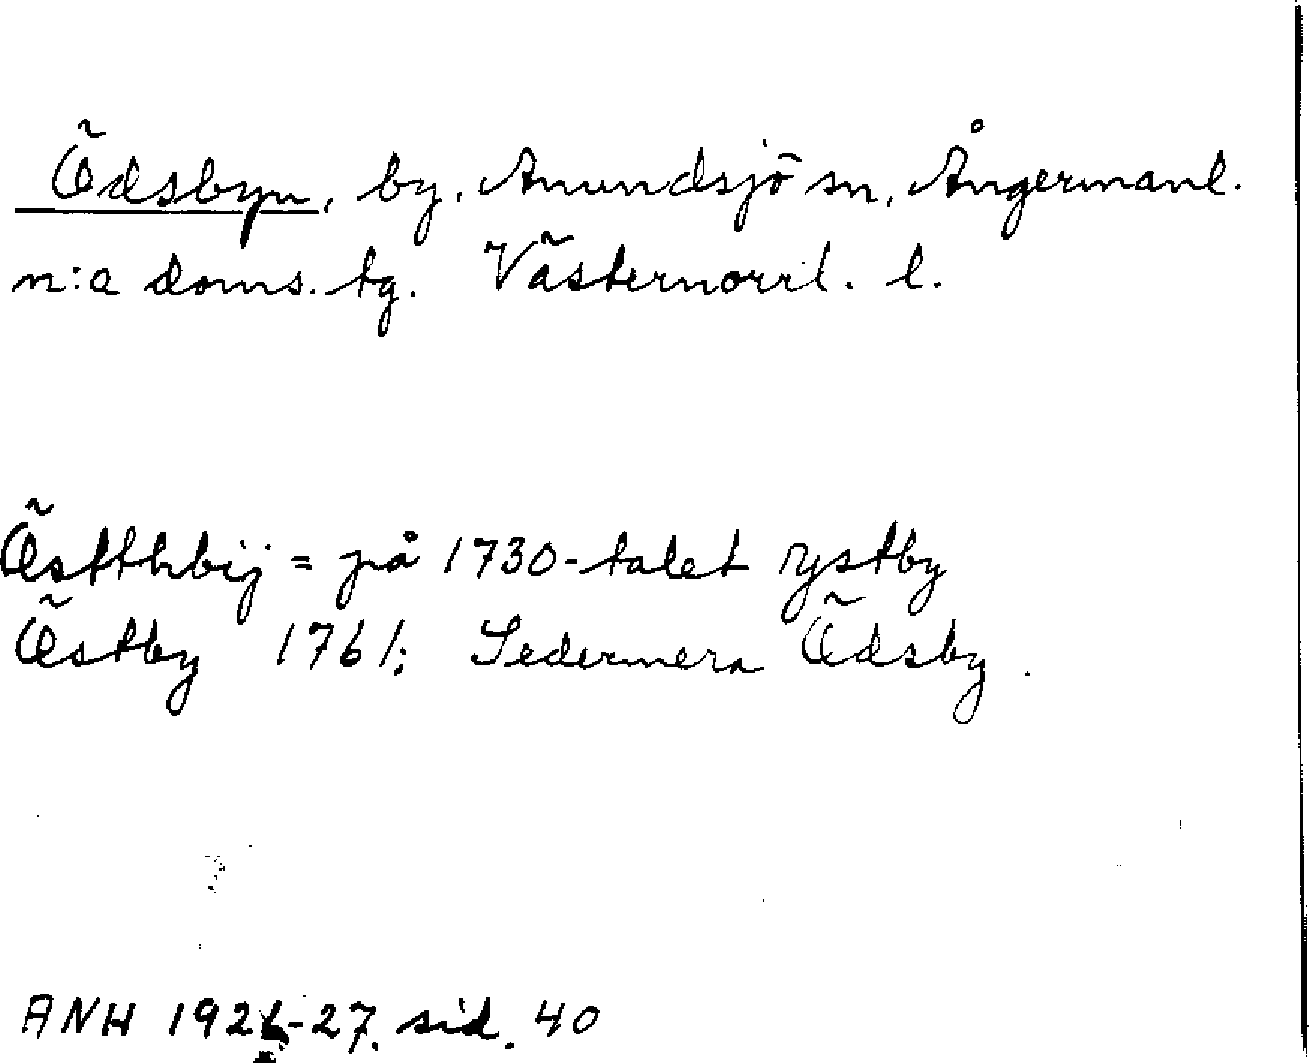 Ödsbyn, by, Anundsjö sn, Ångermanl.
n:a doms. tg. Västernorrl. l.
Östthbij = på 1730-talet rystby
Östby 1761; Sedermera Ödsby.
ANH 1926-27. sid. 40